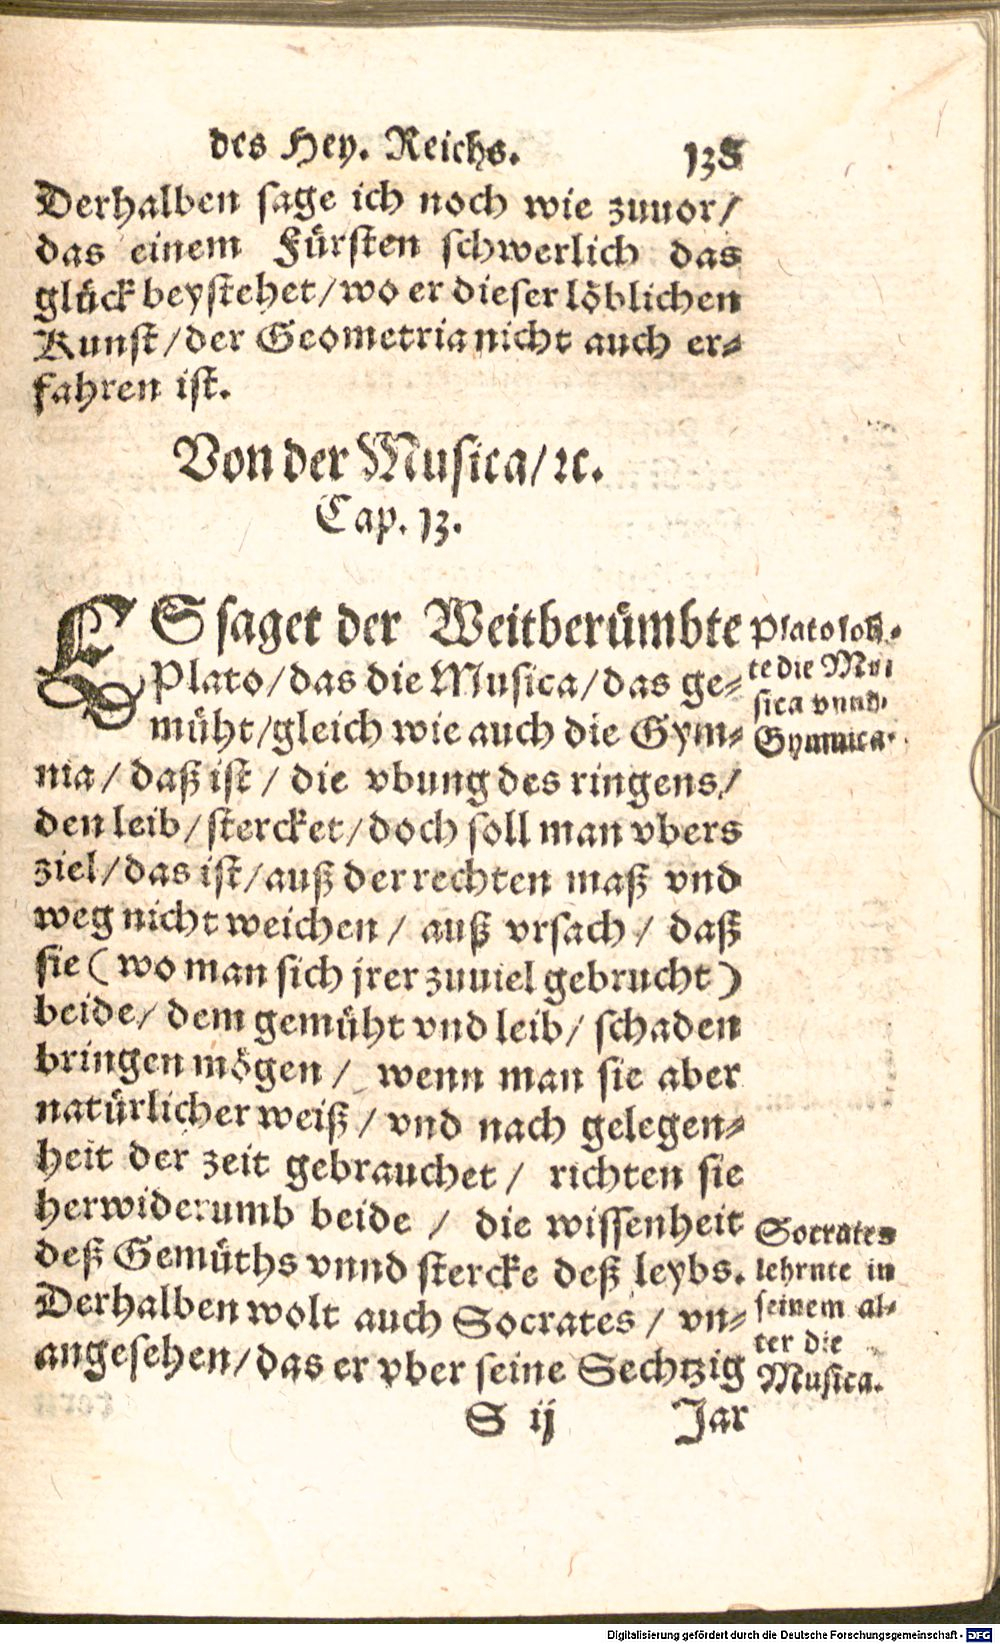 des Hey. Reichs. 138
Derhalben sage ich noch wie zuuor/
das einem Fürsten schwerlich das
glück beystehet/wo er dieser löblichen
Kunst/der Geometria nicht auch er-
fahren ist.
Von der Musica/ꝛc.
Cap. 13.
ES saget der Weitberümbte
Plato/das die Musica/das ge-
müht/gleich wie auch die Gym-
nia/daß ist/ die vbung des ringens/
den leib/stercket/doch soll man vbers
ziel/das ist/auß der rechten maß vnd
weg nicht weichen/ auß vrsach/ daß
sie (wo man sich jrer zuuiel gebrucht)
beide/ dem gemüht vnd leib/ schaden
bringen mögen/ wenn man sie aber
natürlicher weiß/ vnd nach gelegen-
heit der zeit gebrauchet/ richten sie
herwiderumb beide/ die wissenheit
deß Gemüths vnnd stercke deß leybs.
Derhalben wolt auch Socrates/ vn-
angesehen/das er vber seine Sechtzig
S ij Jar
Plato lob-
te die Mu
sica vnnd
Gymnica.
Socrates
lehrnte in
seinem al-
ter die
Musica.
Digitalisierung gefördert durch die Deutsche Forschungsgemeinschaft - DFG